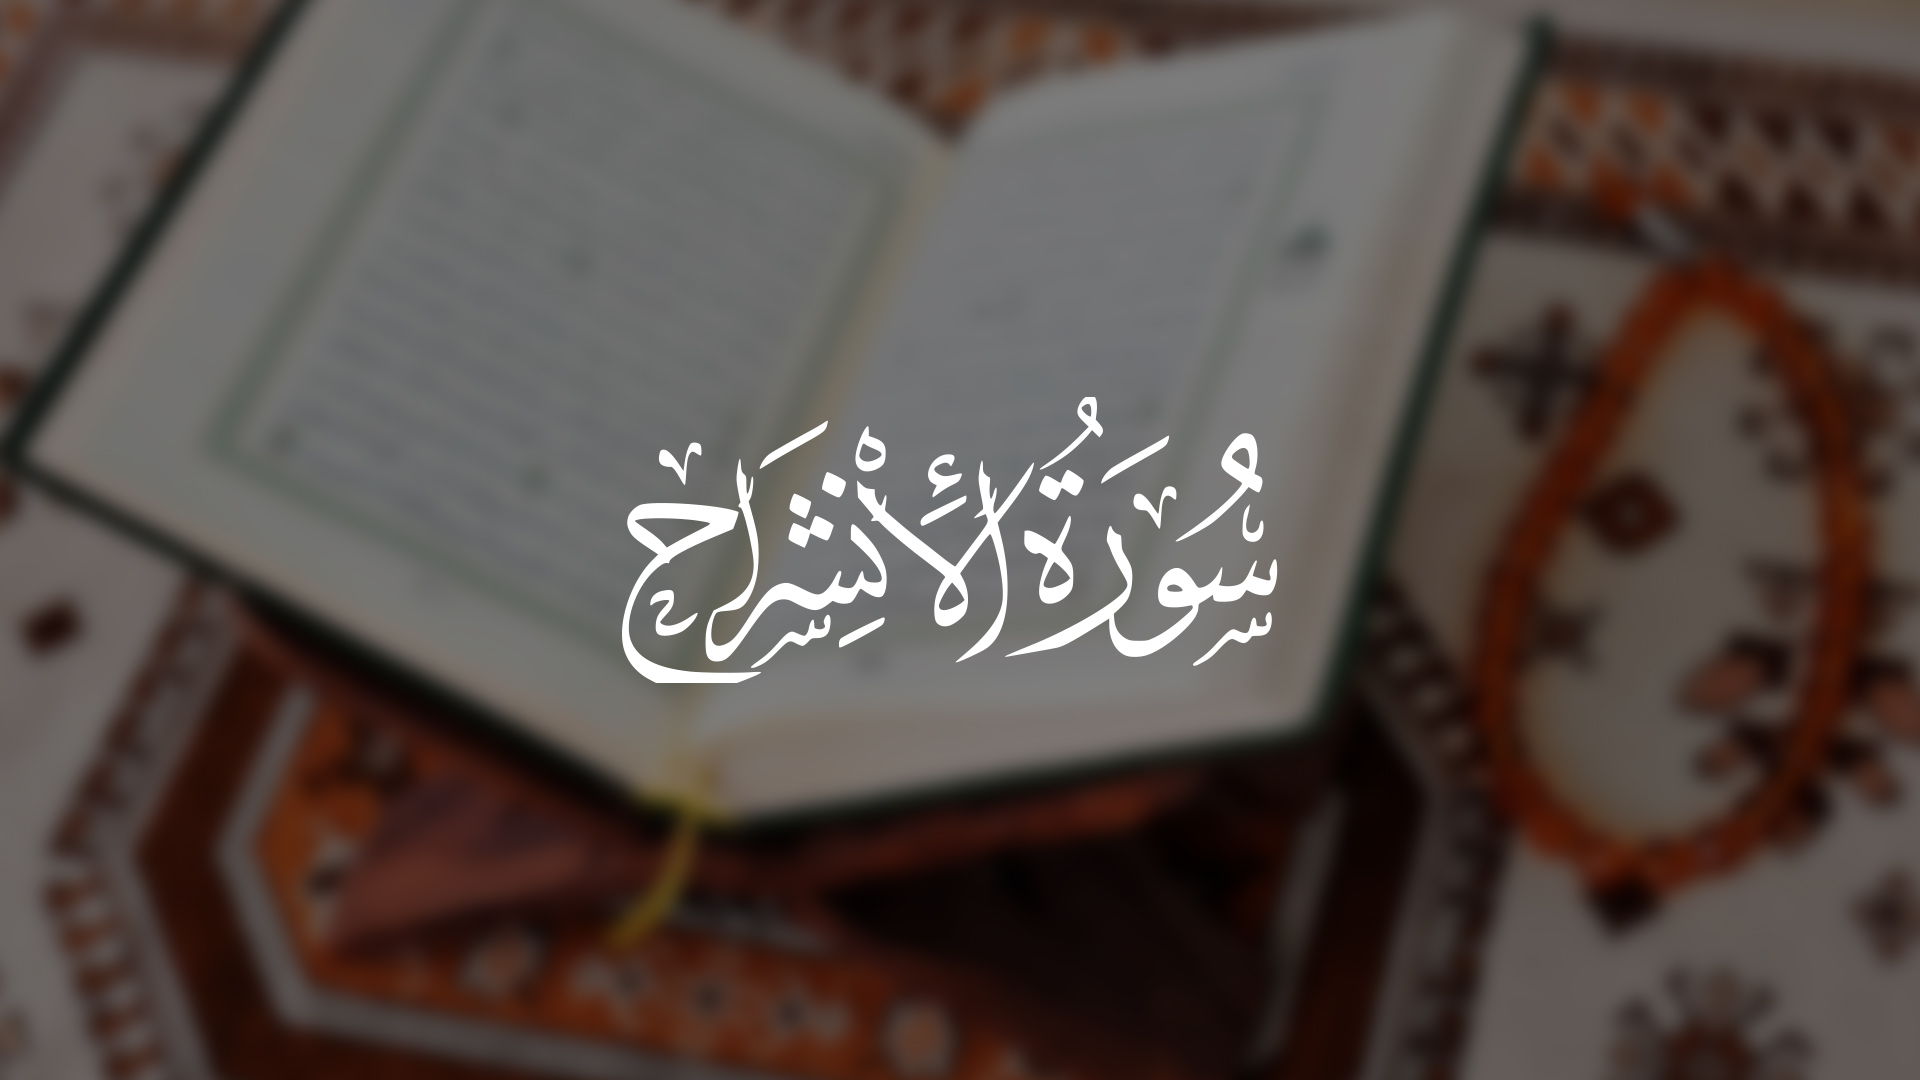 سُورَةُ الْإِنْشِرَاح